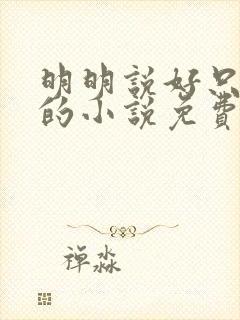 明明說好只
的小說免費
禪淼